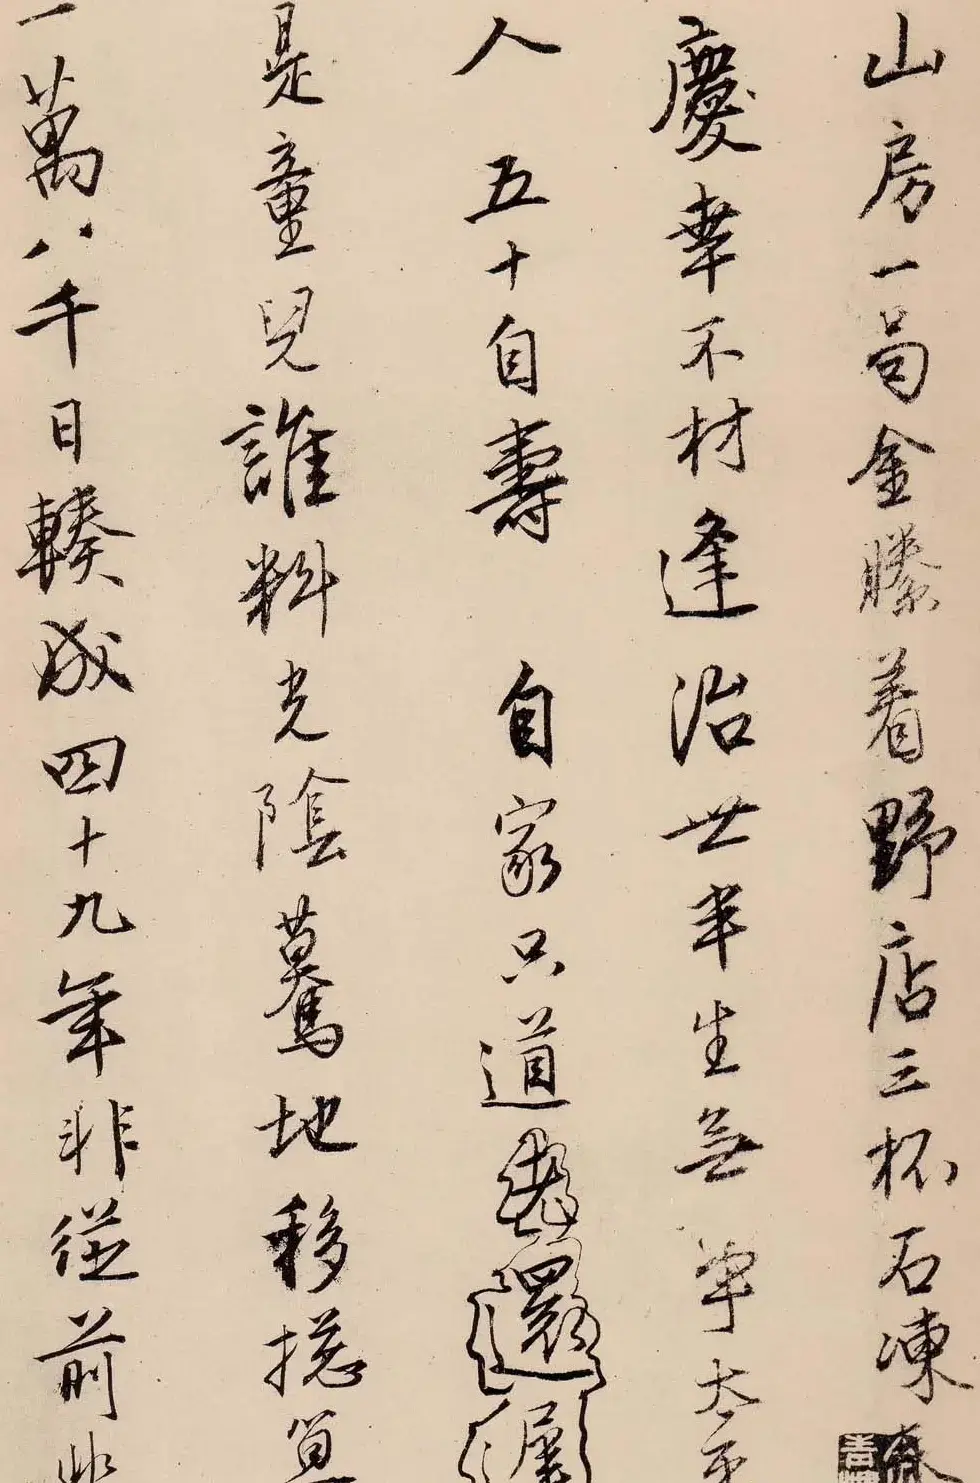 山房一局金縢着野店三杯石凍春
慶幸不材逢治世半生無事太平
人 五十自壽 自家只道老還
是童兒誰料光陰驀地移總算
一萬八千日輳成四十九年非從前